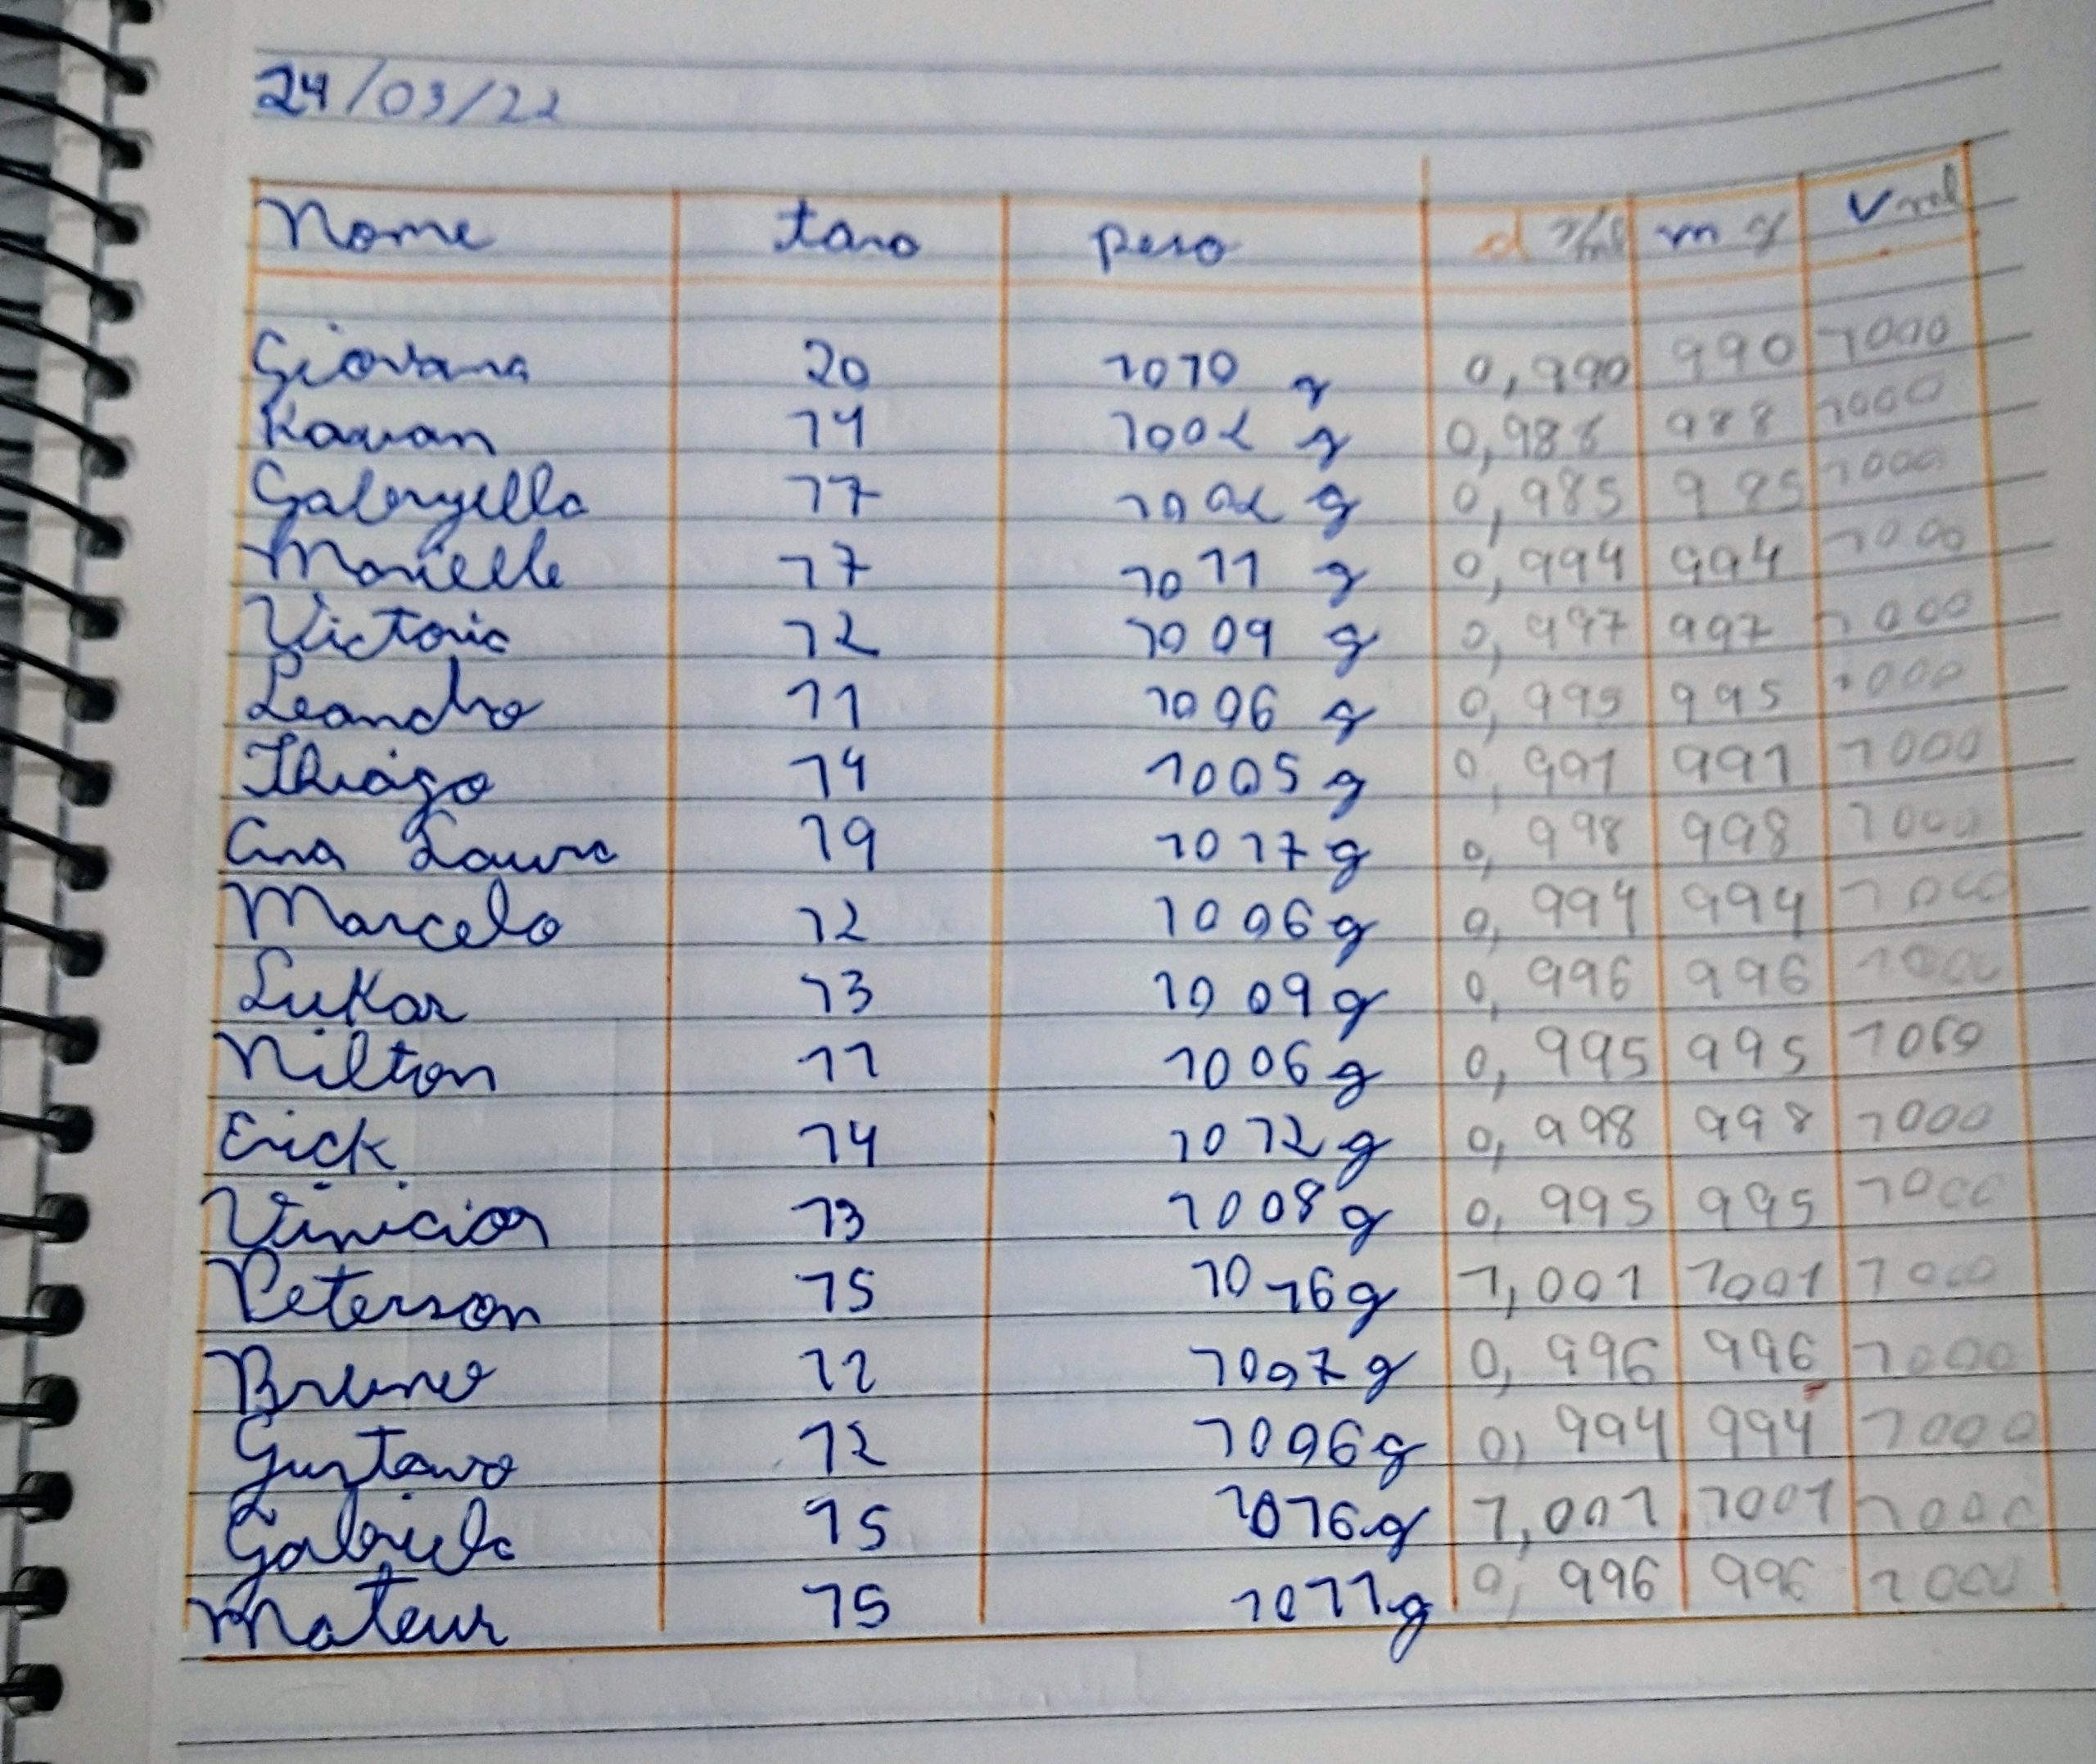 24/03/22
Nome tara peso d g/ml m g V ml
Giovana 20 1010 g 0,990 990 1000
Kauan 14 1002 g 0,988 988 1000
Gabryella 17 1002 g 0,985 985 1000
Marielle 17 1011 g 0,994 994 1000
Victoria 12 1009 g 0,997 997 1000
Leandro 11 1006 g 0,995 995 1000
Thiago 14 1005 g 0,991 991 1000
Ana Laura 19 1017 g 0,998 998 1000
Marcelo 12 1006 g 0,994 994 1000
Lukas 13 1009 g 0,996 996 1000
Nilton 11 1006 g 0,995 995 1000
Erick 14 1012 g 0,998 998 1000
Vinicios 13 1008 g 0,995 995 1000
Peterson 15 1016 g 1,001 1001 1000
Bruno 11 1007 g 0,996 996 1000
Gustavo 12 1006 g 0,994 994 1000
Gabriela 15 1016 g 1,001 1001 1000
Mateus 15 1011 g 0,996 996 1000